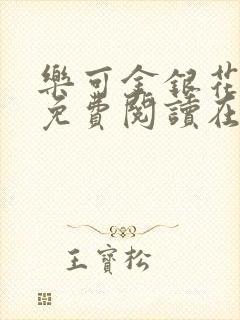 樂可金銀花
免費閱讀在
王寶松